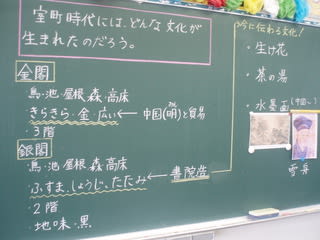 室町時代には、どんな文化が
生まれたのだろう。
金閣
・鳥・池・屋根・森・高床
・きらきら・金・広い ← 中国(明)と貿易
みん
・3階
銀閣
・鳥・池・屋根・森・高床
・ふすま、しょうじ、たたみ ← 書院造
・2階
・地味・黒
今に伝わる文化!
・生け花
・茶の湯
・水墨画(中国〜)
雪舟